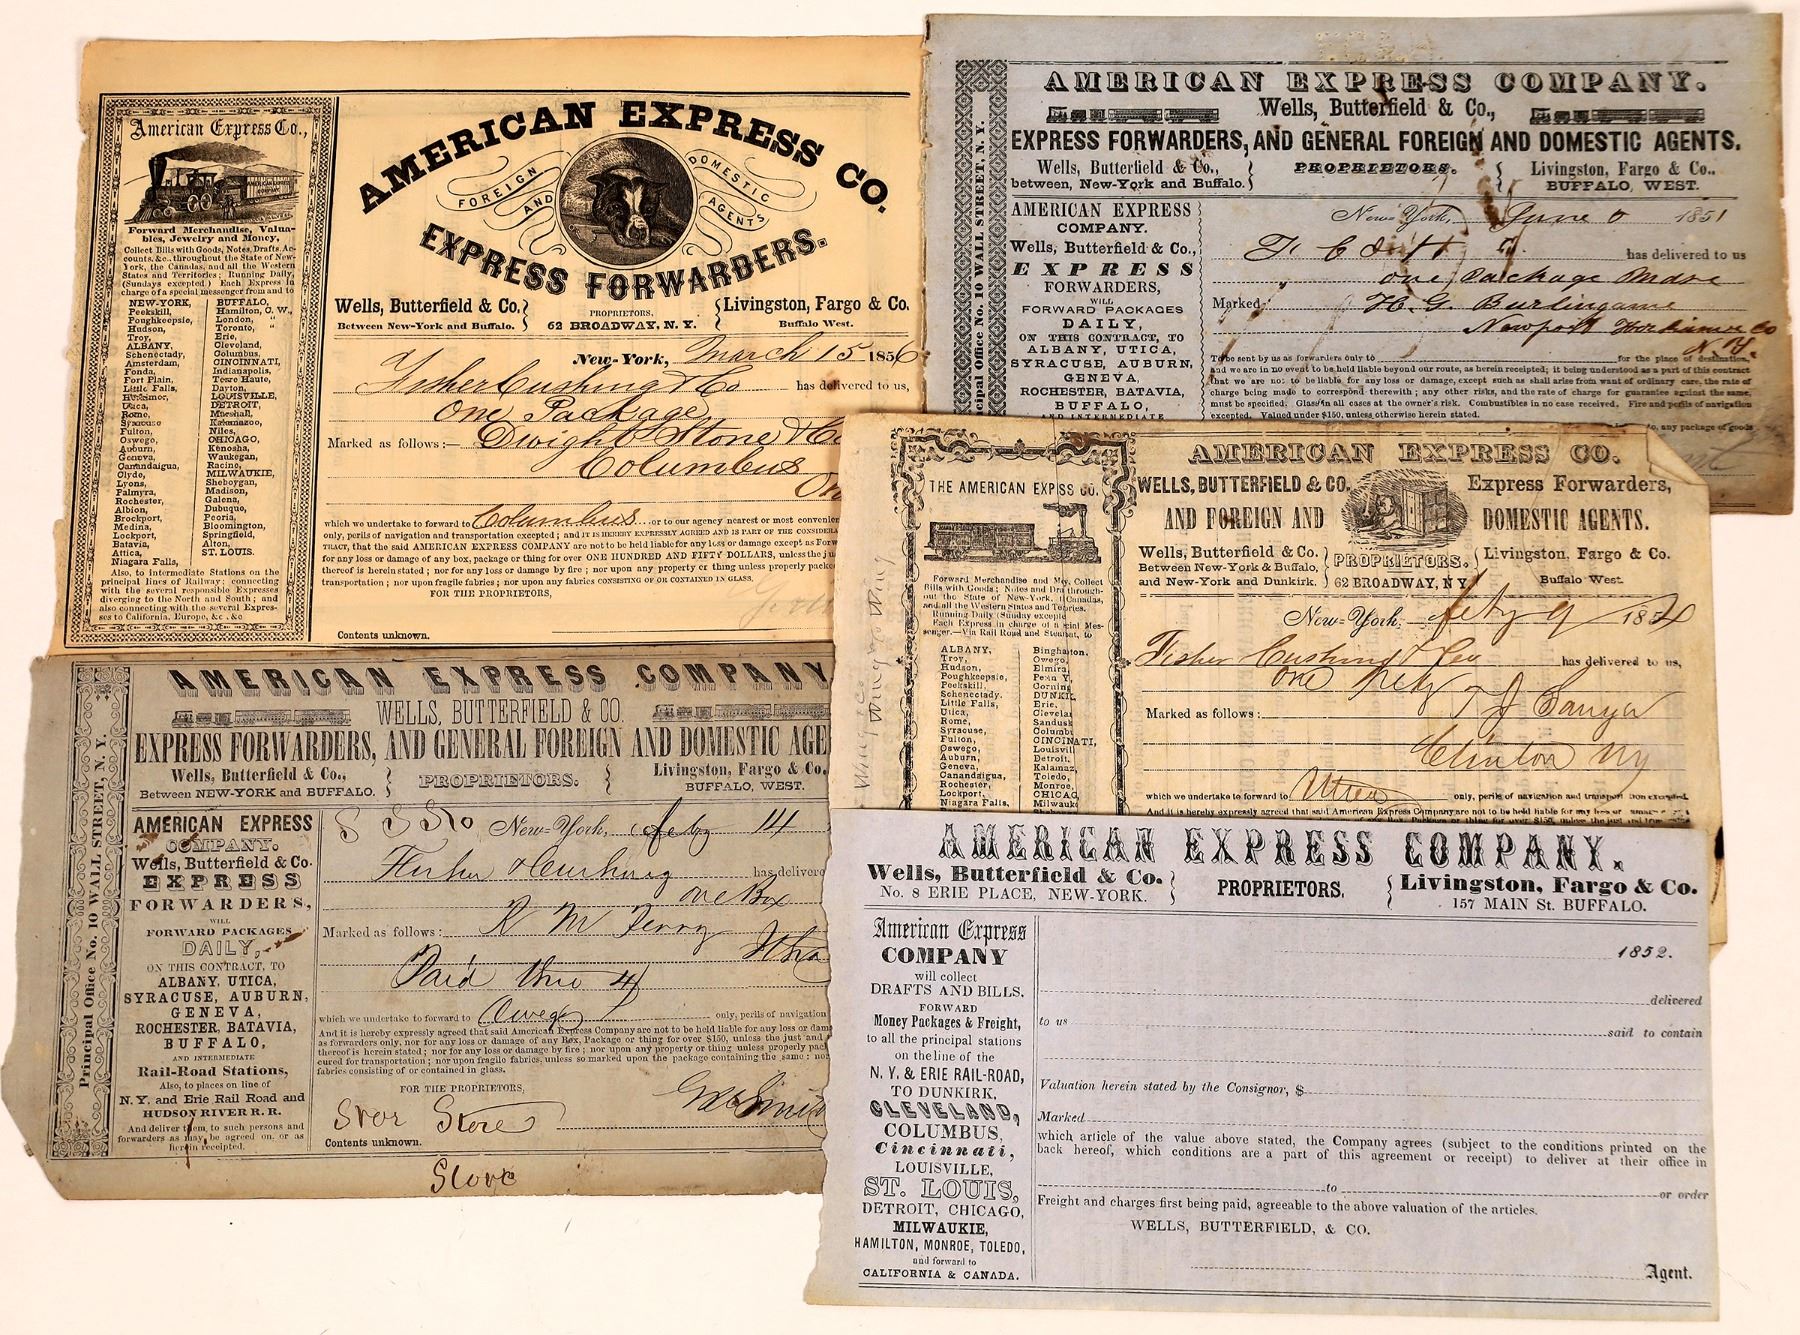 American Express Co.,
AMERICAN EXPRESS
COMPANY.
Forward Merchandise, Valua-
bles, Jewelry and Money,
Collect Bills with Goods, Notes, Drafts, Ac-
counts, &c., throughout the State of New-
York, the Canadas, and all the Western
States and Territories; Running Daily,
(Sundays excepted) Each Express in
charge of a special messenger from and to
NEW-YORK, BUFFALO,
Peekskill, Hamilton, C. W.,
Poughkeepsie, London, "
Hudson, Toronto, "
Troy, Erie,
ALBANY, Cleveland,
Schenectady, Columbus,
Amsterdam, CINCINNATI,
Fonda, Indianapolis,
Fort Plain, Terre Haute,
Little Falls, Dayton,
Herkimer, LOUISVILLE,
Utica, DETROIT,
Rome, Marshall,
Syracuse Kalamazoo,
Fulton, Niles,
Oswego, CHICAGO,
Auburn, Kenosha,
Geneva, Waukegan,
Canandaigua, Racine,
Clyde, MILWAUKIE,
Lyons, Sheboygan,
Palmyra, Madison,
Rochester, Galena,
Albion, Dubuque,
Brockport, Peoria,
Medina, Bloomington,
Lockport, Springfield,
Batavia, Alton,
Attica, ST. LOUIS.
Niagara Falls,
Also, to intermediate Stations on the
principal lines of Railway; connecting
with the several responsible Expresses
diverging to the North and South; and
also connecting with the several Expres-
ses to California, Europe, &c., &c
AMERICAN EXPRESS CO.
FOREIGN AND DOMESTIC AGENTS
EXPRESS FORWARDERS.
Wells, Butterfield & Co. PROPRIETORS. Livingston, Fargo & Co.
Between New-York and Buffalo. 62 BROADWAY, N.Y. Buffalo West.
New-York, March 15 1856
Fisher Cushing & Co has delivered to us,
One Package
Marked as follows:— Dwight Stone & Co
Columbus
which we undertake to forward to Columbus or to our agency nearest or most convenien
only, perils of navigation and transportation excepted; and IT IS HEREBY EXPRESSLY AGREED AND IS PART OF THE CONSIDERA
TRACT, that the said AMERICAN EXPRESS COMPANY are not to be held liable for any loss or damage except as Forw
for any loss or damage of any box, package or thing for over ONE HUNDRED AND FIFTY DOLLARS, unless the ju
thereof is herein stated; nor for any loss or damage by fire; nor upon any property or thing unless properly packe
transportation; nor upon fragile fabrics; nor upon any fabrics CONSISTING OF OR CONTAINED IN GLASS.
FOR THE PROPRIETORS,
Contents unknown.
AMERICAN EXPRESS COMPANY.
Wells, Butterfield & Co.,
EXPRESS FORWARDERS, AND GENERAL FOREIGN AND DOMESTIC AGENTS.
Wells, Butterfield & Co., PROPRIETORS. Livingston, Fargo & Co.,
between, New-York and Buffalo. BUFFALO, WEST.
cipal Office No. 10 WALL STREET, N. Y.
AMERICAN EXPRESS
COMPANY.
Wells, Butterfield & Co.,
EXPRESS
FORWARDERS,
WILL
FORWARD PACKAGES
DAILY,
ON THIS CONTRACT, TO
ALBANY, UTICA,
SYRACUSE, AUBURN,
GENEVA,
ROCHESTER, BATAVIA,
BUFFALO,
AND INTERMEDIATE
New-York, June 1851
has delivered to us
one Package Mdse
Marked H. G. Burlingame
Newport Herkimer Co
N.Y.
To be sent by us as forwarders only to for the place of destination,
and we are in no event to be held liable beyond our route, as herein receipted; it being understood as a part of this contract
that we are not to be liable for any loss or damage, except such as shall arise from want of ordinary care, the rate of
charge being made to correspond therewith; any other risks, and the rate of charge for guarantee against the same,
must be specified. Glass in all cases at the owner's risk. Combustibles in no case received. Fire and perils of navigation
excepted. Valued under $150, unless otherwise herein stated.
to, any package of goods
AMERICAN EXPRESS COMPANY
WELLS, BUTTERFIELD & CO.
EXPRESS FORWARDERS, AND GENERAL FOREIGN AND DOMESTIC AGE
Wells, Butterfield & Co., PROPRIETORS. Livingston, Fargo & Co.,
Between NEW-YORK and BUFFALO. BUFFALO, WEST.
Principal Office No. 10 WALL STREET, N. Y.
AMERICAN EXPRESS
COMPANY.
Wells, Butterfield & Co.
EXPRESS
FORWARDERS,
WILL
FORWARD PACKAGES
DAILY,
ON THIS CONTRACT, TO
ALBANY, UTICA,
SYRACUSE, AUBURN,
GENEVA,
ROCHESTER, BATAVIA,
BUFFALO,
AND INTERMEDIATE
Rail-Road Stations,
Also, to places on line of
N. Y. and Erie Rail Road and
HUDSON RIVER R. R.
And deliver them, to such persons and
forwarders as may be agreed on, or as
herein receipted.
New-York, Feby 14
Fisher & Cushing has delivere
one Box
Marked as follows: R M Terry
Paid thro 4/
which we undertake to forward to Owego only, perils of navigation
And it is hereby expressly agreed that said American Express Company are not to be held liable for any loss or dam
as forwarders only, nor for any loss or damage of any Box, Package or thing for over $150, unless the just and
thereof is herein stated; nor for any loss or damage by fire; nor upon any property or thing unless properly pack
cured for transportation; nor upon fragile fabrics, unless so marked upon the package containing the same; nor
fabrics consisting of or contained in glass.
FOR THE PROPRIETORS,
Geo Smith
Store
Contents unknown.
Store
THE AMERICAN EXP SS CO.
Forward Merchandise and M y, Collect
Bills with Goods; Notes and Dra through-
out the State of New-York, Canadas,
and all the Western States and Te ries.
Running Daily (Sunday excepte
Each Express in charge of a s ial Mes-
senger.—Via Rail Road and Steamb at, to
ALBANY, Binghamton,
Troy, Owego,
Hudson, Elmira,
Poughkeepsie, Penn Y.
Peekskill, Corning
Schenectady, DUNKIR
Little Falls, Erie,
Utica, Clevelan
Rome, Sandusk
Syracuse, Columbu
Fulton, CINCINNATI,
Oswego, Louisvill
Auburn, Detroit,
Geneva, Kalamaz
Canandaigua, Toledo,
Rochester, Monroe,
Lockport, CHICAG
Niagara Falls, Milwauk
AMERICAN EXPRESS CO.
WELLS, BUTTERFIELD & CO. Express Forwarders,
AND FOREIGN AND DOMESTIC AGENTS.
Wells, Butterfield & Co. PROPRIETORS. Livingston, Fargo & Co.
Between New-York & Buffalo, 62 BROADWAY, N.Y. Buffalo West.
and New-York and Dunkirk.
New-York, Feby 9 1854
Fisher Cushing & Co has delivered to us,
One
Marked as follows: T J Sawyer
Clinton NY
which we undertake to forward to Utica only, perils of navigation and transport tion excepted.
And it is hereby expressly agreed that said American Express Company are not to be held liable for any loss or
AMERICAN EXPRESS COMPANY.
Wells, Butterfield & Co. PROPRIETORS. Livingston, Fargo & Co.
No. 8 ERIE PLACE, NEW-YORK. 157 MAIN St. BUFFALO.
American Express
COMPANY
will collect
DRAFTS AND BILLS,
FORWARD
Money Packages & Freight,
to all the principal stations
on the line of the
N. Y. & ERIE RAIL-ROAD,
TO DUNKIRK,
CLEVELAND,
COLUMBUS,
Cincinnati,
LOUISVILLE,
ST. LOUIS,
DETROIT, CHICAGO,
MILWAUKIE,
HAMILTON, MONROE, TOLEDO,
and forward to
CALIFORNIA & CANADA.
1852.
delivered
to us said to contain
Valuation herein stated by the Consignor, $
Marked
which article of the value above stated, the Company agrees (subject to the conditions printed on the
back hereof, which conditions are a part of this agreement or receipt) to deliver at their office in
to or order
Freight and charges first being paid, agreeable to the above valuation of the articles.
WELLS, BUTTERFIELD, & CO.
Agent.